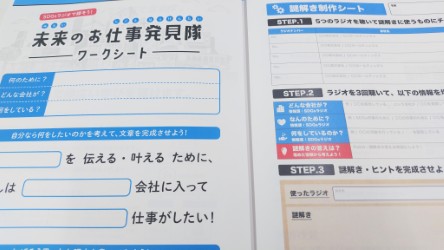 SDGsラジオで探そう!
みらい しごと はっけんたい
未来のお仕事発見隊
ワークシート
何のために?
どんな会社が?
何をしている?
自分なら何をしたいのかを考えて、文章を完成させよう!
を 伝える・叶える ために、
しは
会社に入って
仕事がしたい!
謎解き制作シート
STEP.1
5つのラジオを聴いて謎解きに使うものにチ
STEP.2
ラジオを3回聴いて、以下の情報を
どんな会社が?
なんのために?
何をしているのか?
謎解きの答えは?
STEP.3
謎解き・ヒントを完成させよ
使ったラジオ
謎解き